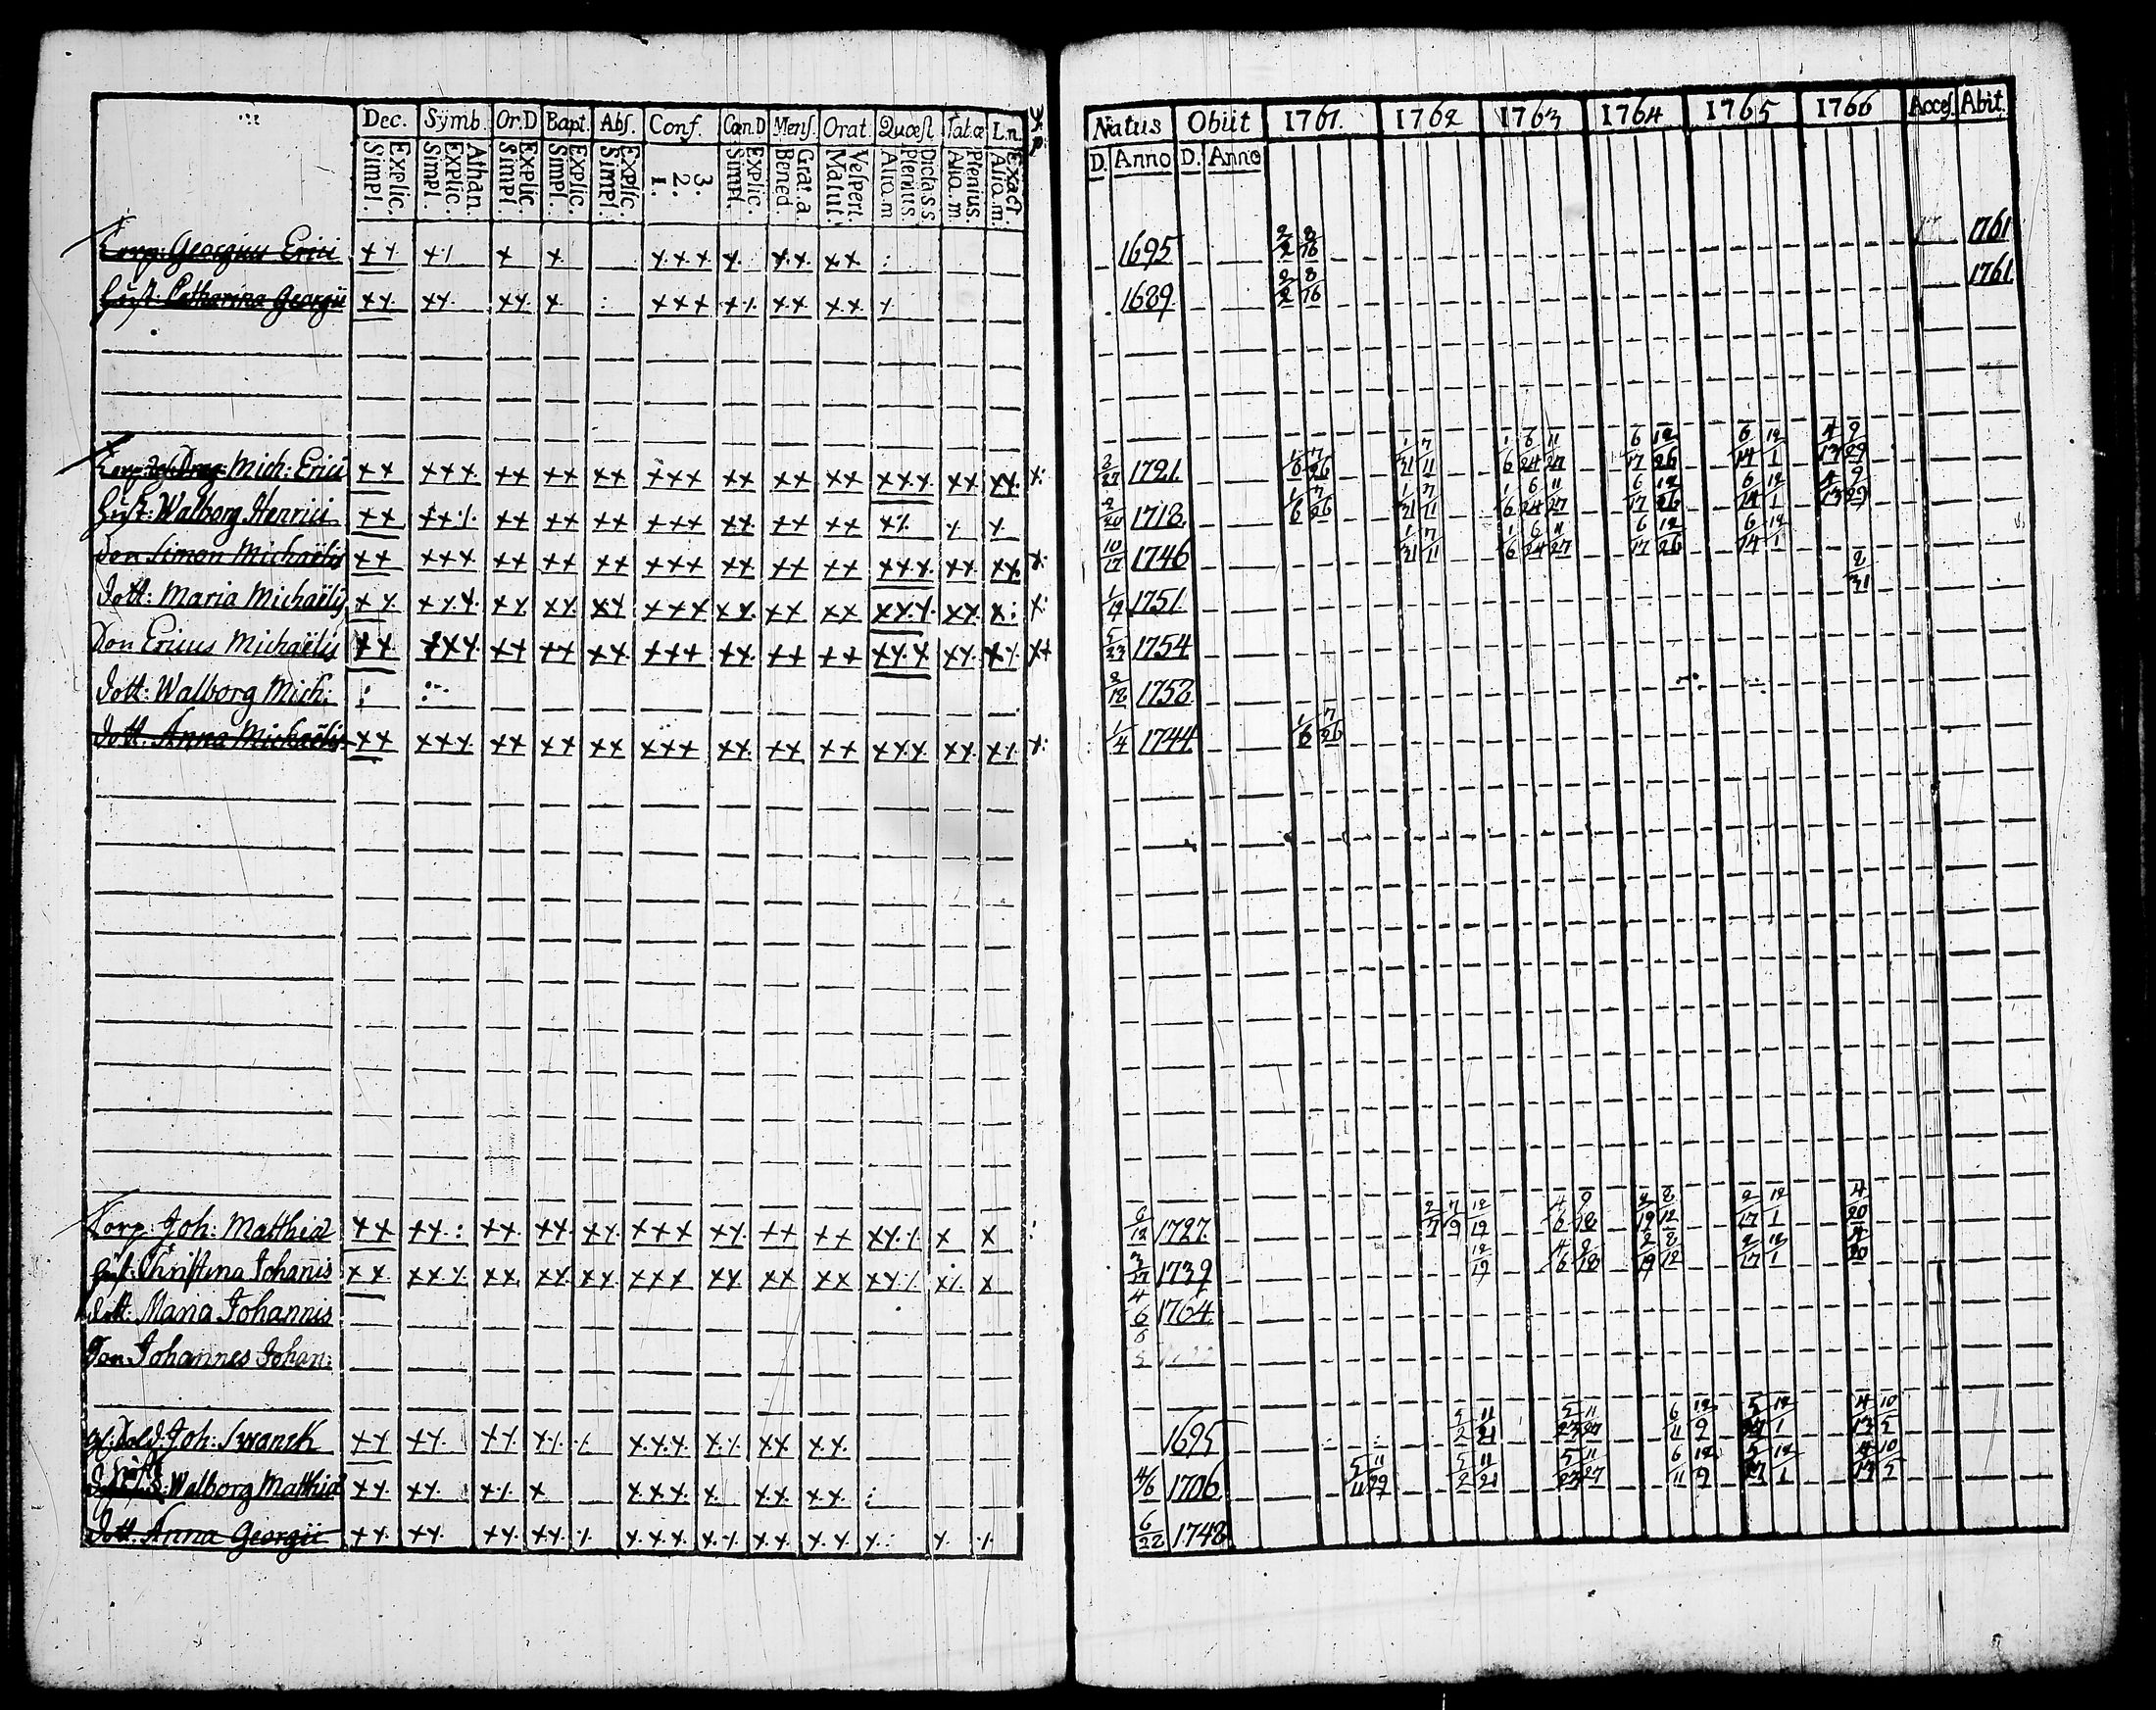 Dec. Symb. Or.D Bapt. Abs. Conf. Cœn.D Mens. Orat. Quæst Tab.œ L.n.
Explic. Simpl. Athan. Explic. Simpl. Explic. Simpl. Explic. Simpl. Explic. Simpl. 3. 2. 1. Explic. Simpl. Grat.a Bened. Vespert. Matut. Dicta s.s. Plenius. Alia.m Plenius. Alia.m. Exact. Alia.m.
Natus Obiit 1761. 1762 1763 1764 1765 1766 Acces. Abit.
D. Anno D. Anno
Corp: Georgius Erici 1695 2/2 8/16 1761
Hust: Catharina Georgii 1689 2/2 8/16 1761
Mich: Erici 3/27 1721 1/6 7/26 1/31 7/11 1/6 6/24 11/27 6/17 12/26 6/14 12/1 4/13 9/29
Hust: Walborg Henrici 2/20 1718 1/6 7/26 1/31 7/11 1/6 6/24 11/27 6/17 12/26 6/14 12/1 4/13 9/29
Son Simon Michaëlis 10/17 1746 1/31 7/11 1/6 6/24 11/27 6/17 12/26 6/14 12/1
Dott: Maria Michaëlis 1/19 1751 8/31
Son Ericus Michaëlis 5/23 1754
Dott: Walborg Mich: 2/12 1758
Dott: Anna Michaëlis 1/4 1744 1/6 7/26
Corp: Joh: Matthiæ 9/12 1727 2/7 7/9 12/19 4/6 9/18 2/19 8/12 2/17 12/1 4/20
Hust: Christina Johanis 3/27 1739 12/19 4/6 9/18 2/19 8/12 2/17 12/1 4/20
Dott: Maria Johannis 4/6 1764
Son Johannes Johan:
Joh: Swansk 1695 5/2 11/21 5/23 11/27 6/11 12/9 5/27 12/1 4/13 10/5
Walborg Matthiæ 4/6 1706 5/11 11/29 5/2 11/21 5/23 11/27 6/11 12/9 5/27 12/1 4/13 10/5
Dott. Anna Georgii 6/22 1748